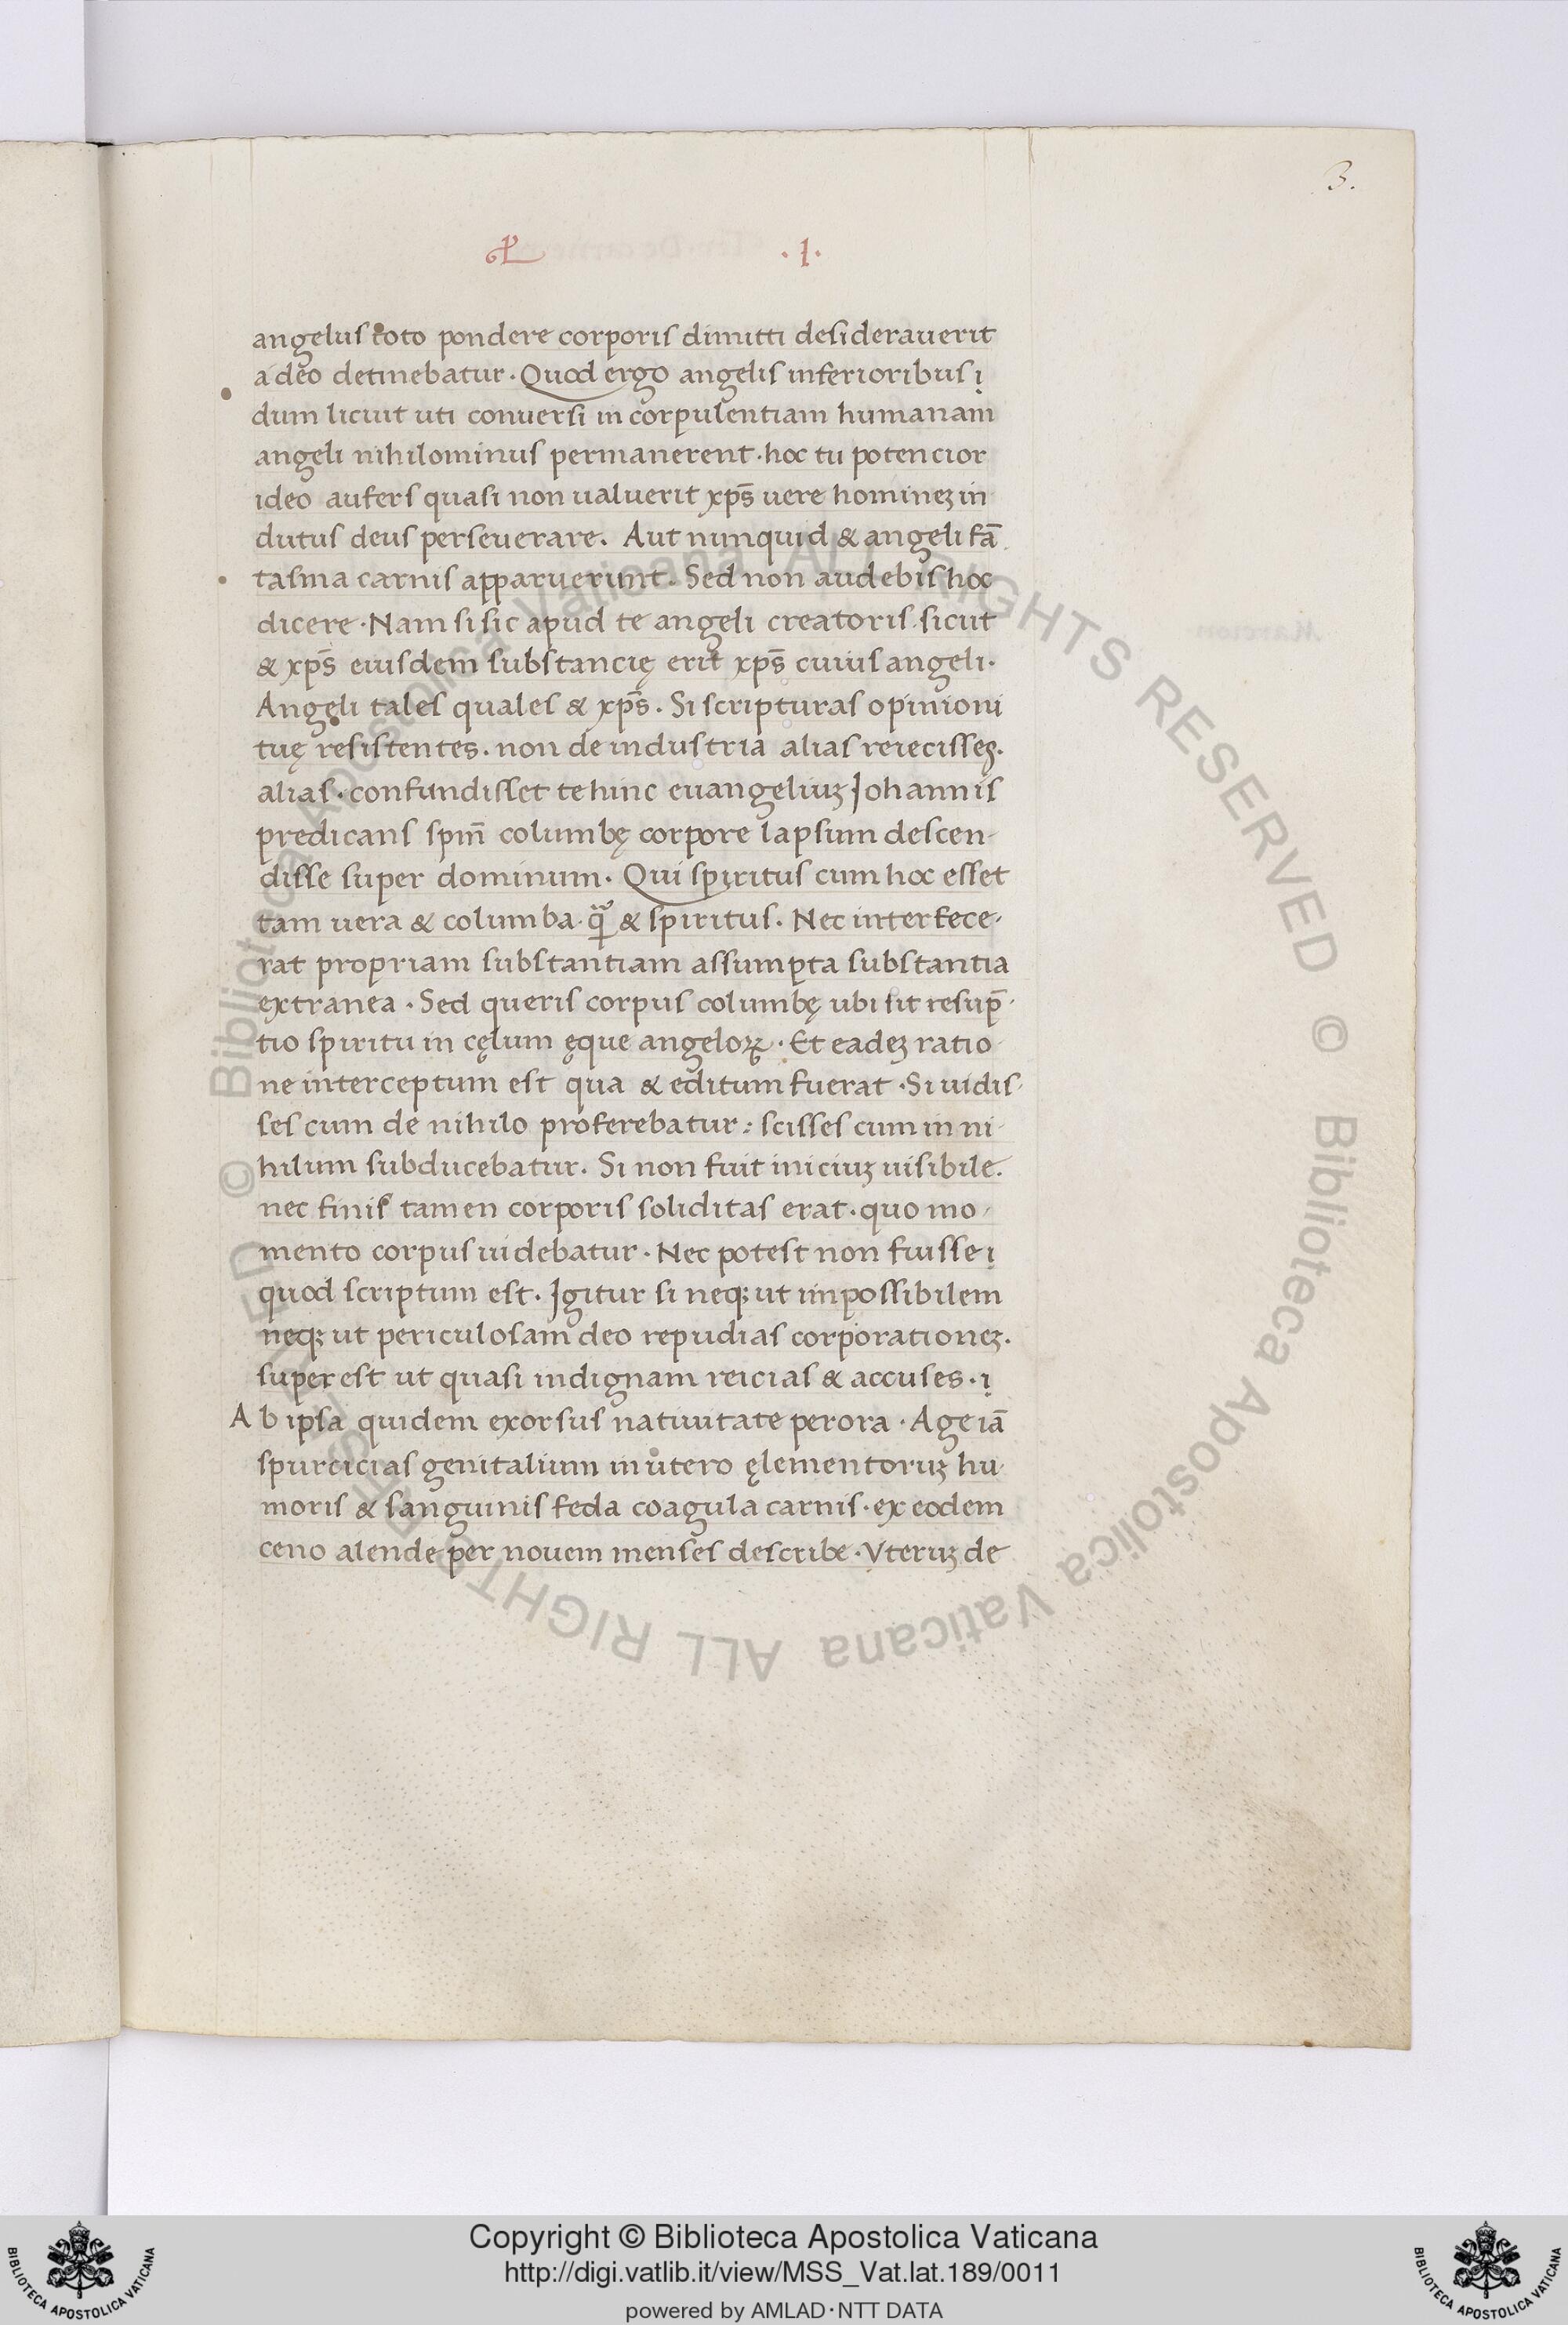 3.
.I.
angelus toto pondere corporis dimitti desiderauerit
a deo detinebatur · Quod ergo angelis inferioribus i
dum licuit uti conuersi in corpulentiam humanam
angeli nihilominus permanerent · hoc tu potencior
ideo aufers quasi non ualuerit xp̄s uere homineʒ in
dutus deus perseuerare. Aut nunquid & angeli fā
tasma carnis apparuerunt. Sed non audebis hoc
dicere · Nam si sic apud te angeli creatoris . sicut
& xp̄s eiusdem substancię erit xp̄s cuius angeli ·
Angeli tales quales & xp̄s. Si scripturas opinioni
tuę resistentes. non de industria alias reiecisseʒ.
alias · confundisset te hinc euangeliuʒ Johannis
predicans spm̄ columbę corpore lapsum descen-
disse super dominum · Qui spiritus cum hoc esset
tam uera & columba · qᷓ & spiritus. Nec interfece-
rat propriam substantiam assumpta substantia
extranea · Sed queris corpus columbę ubi sit resup̄-
tio spiritu in cęlum ęque angeloꝝ · Et eadeʒ ratio
ne interceptum est qua & editum fuerat · Si uidis-
ses cum de nihilo proferebatur : scisses cum in ni-
hilum subducebatur. Si non fuit iniciuʒ uisibile.
nec finis tamen corporis soliditas erat · quo mo-
mento corpus uidebatur · Nec potest non fuisse i
quod scriptum est. Igitur si neqʒ ut impossibilem
neqʒ ut periculosam deo repudias corporationeʒ.
super est ut quasi indignam reicias & accuses · i
Ab ipsa quidem exorsus natiuitate perora · Age iā
spurcicias genitalium in utero ęlementoruʒ hu-
moris & sanguinis feda coagula carnis · ex eodem
ceno alende per nouem menses describe · Vteruʒ de
© Biblioteca Apostolica Vaticana ALL RIGHTS RESERVED © Biblioteca Apostolica Vaticana ALL RIGHTS RESERVED
Copyright © Biblioteca Apostolica Vaticana
http://digi.vatlib.it/view/MSS_Vat.lat.189/0011
powered by AMLAD·NTT DATA
BIBLIOTECA APOSTOLICA VATICANA
BIBLIOTECA APOSTOLICA VATICANA